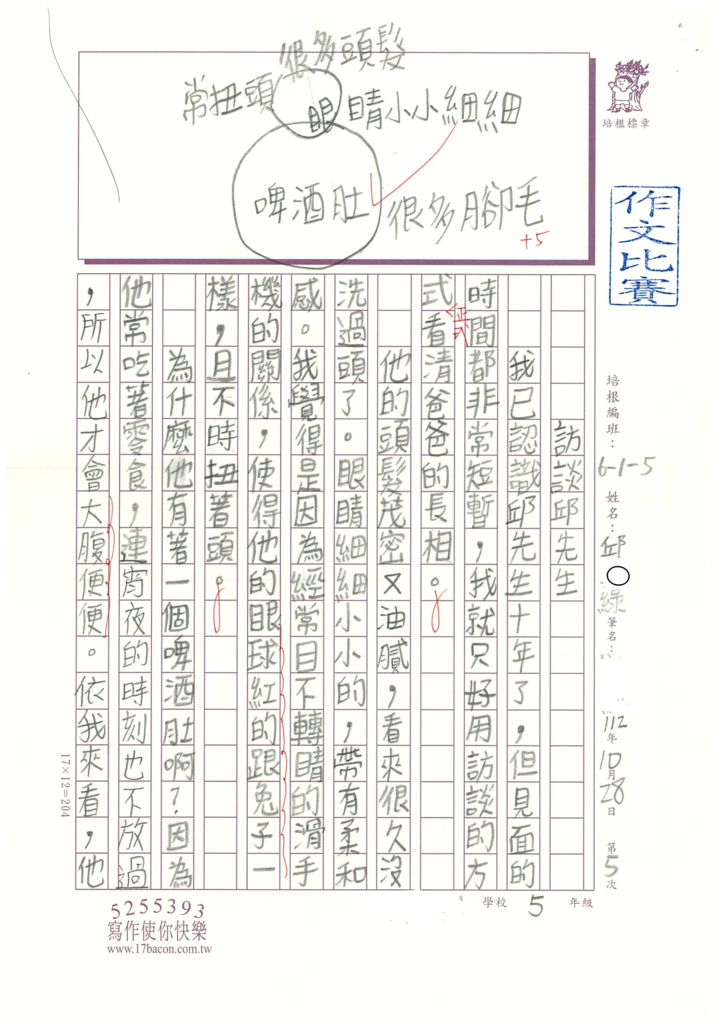 很多頭髮
常扭頭
眼睛小小細細
啤酒肚
很多腳毛
+5
培根標章
作文比賽
培根編班：6-1-5
姓名：邱○綠
筆名：
112年10月28日
第5次
學校 5 年級
訪談邱先生
我已認識邱先生十年了，但見面的
時間都非常短暫，我就只好用訪談的方
式看清爸爸的長相。
正式
他的頭髮茂密又油膩，看來很久沒
洗過頭了。眼睛細細小小的，帶有柔和
感。我覺得是因為經常目不轉睛的滑手
機的關係，使得他的眼球紅的跟兔子一
樣，且不時扭著頭。
為什麼他有著一個啤酒肚啊？因為
他常吃著零食，連宵夜的時刻也不放過
，所以他才會大腹便便。依我來看，他
17×12=204
5255393
寫作使你快樂
www.17bacon.com.tw